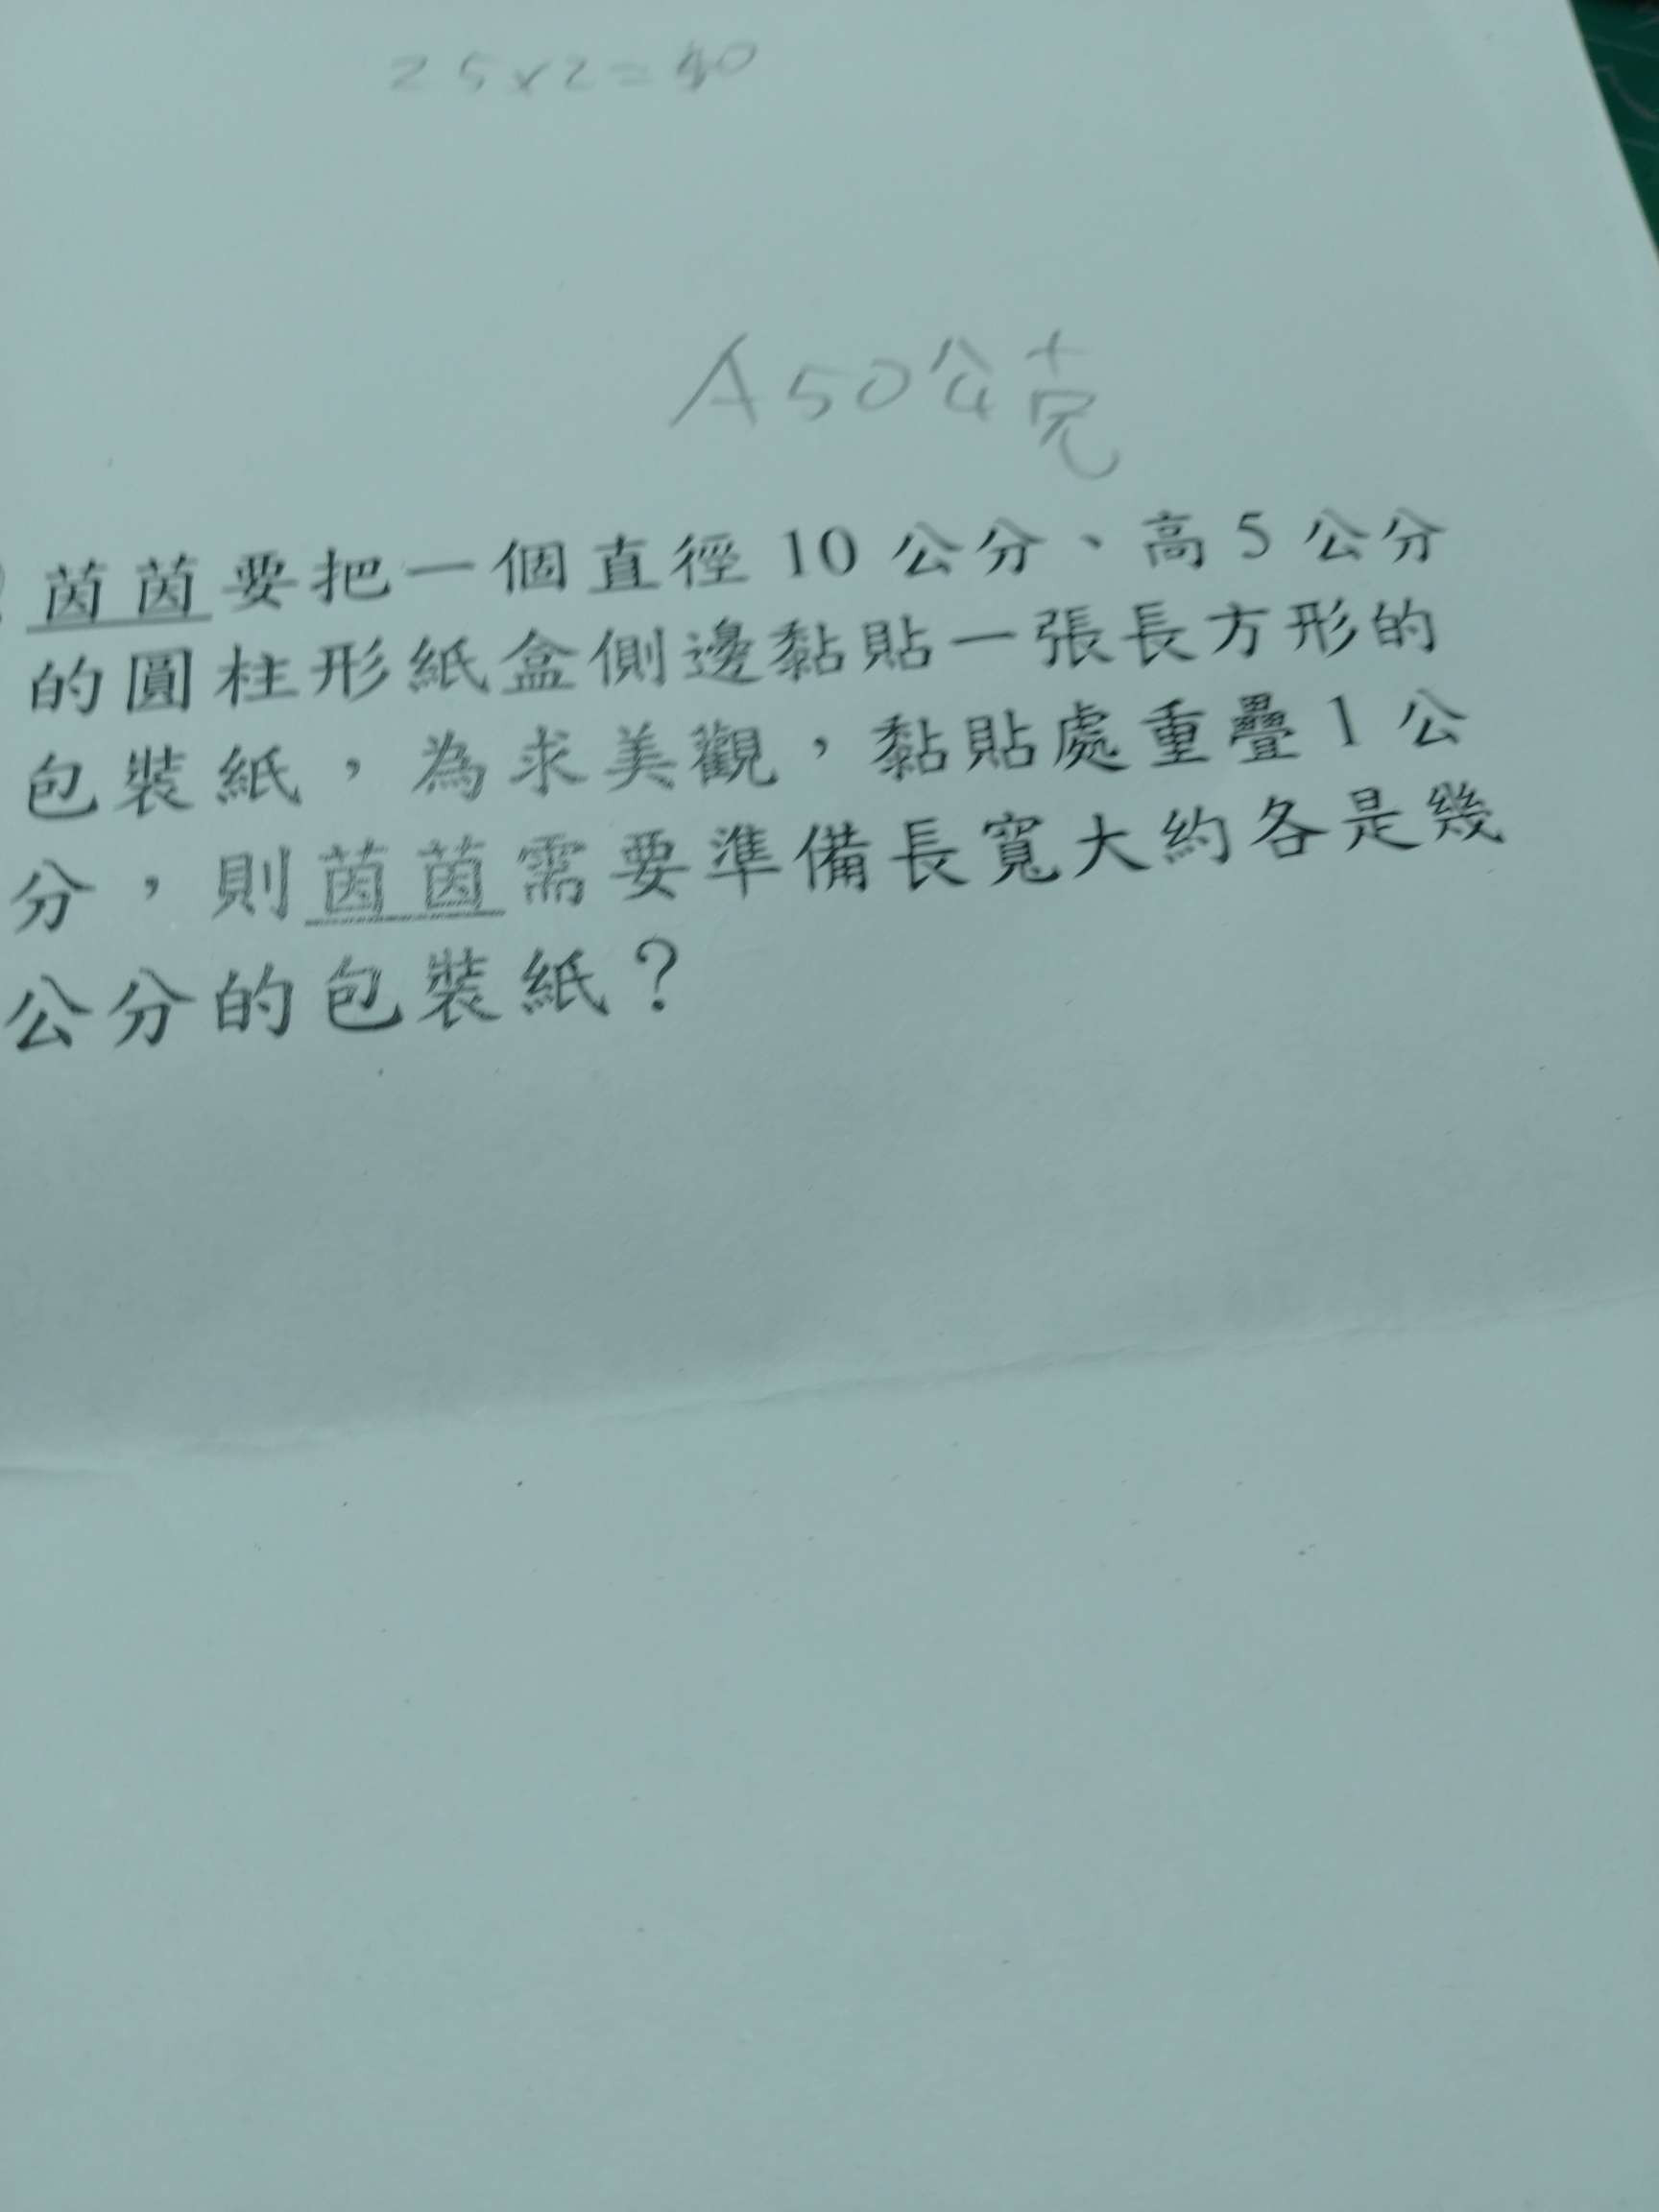 25×2=50
A50公克
茵茵要把一個直徑 10 公分、高 5 公分
的圓柱形紙盒側邊黏貼一張長方形的
包裝紙，為求美觀，黏貼處重疊 1 公
分，則茵茵需要準備長寬大約各是幾
公分的包裝紙？